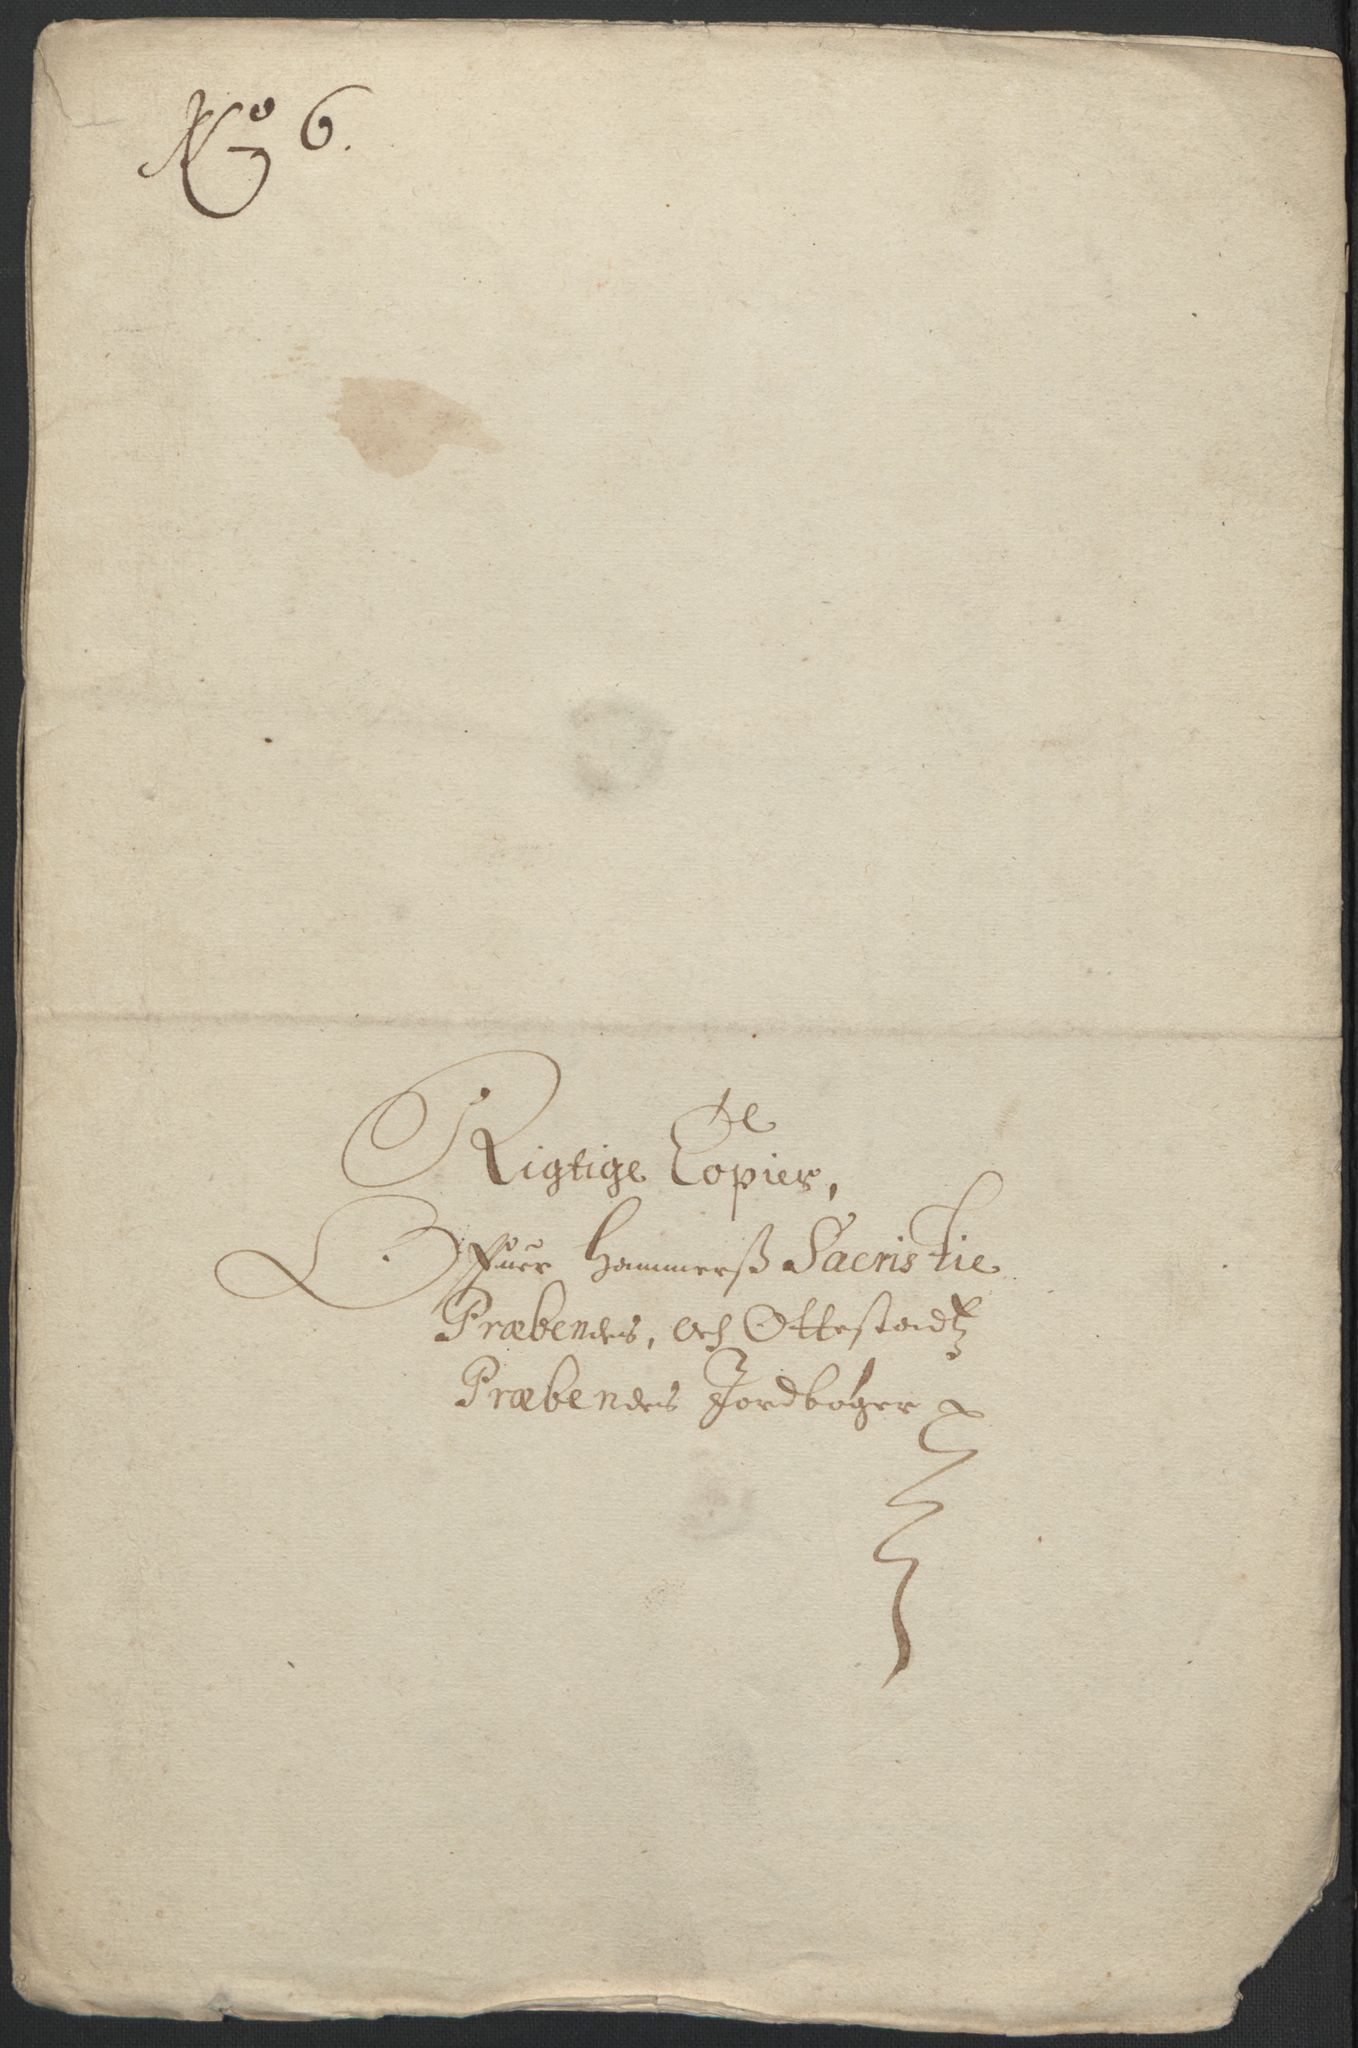 No 6.
Rigtige Copier,
Offuer Hammerß Sacristie
Præbendes, och Ottestadtz
Præbendes Jordbøger